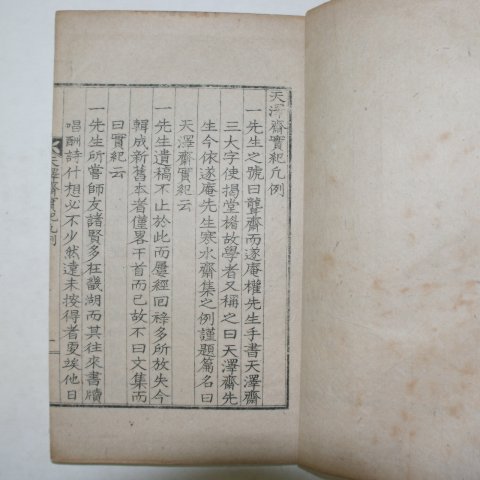 天澤齋實紀凡例
一先生之號曰聾齋而遂庵權先生手書天澤齋
三大字使揭堂楣故學者又稱之曰天澤齋先
生今依遂庵先生寒水齋集之例謹題篇名曰
天澤齋實紀云
一先生遺稿不止於此而屢經回祿多所放失今
輯成新舊本者僅畧干首而已故不曰文集而
曰實紀云
一先生所當師友諸賢多在畿湖而其往來書牘
唱酬詩什想必不少然遠未按得者更竢他日
天澤齋實紀凡例